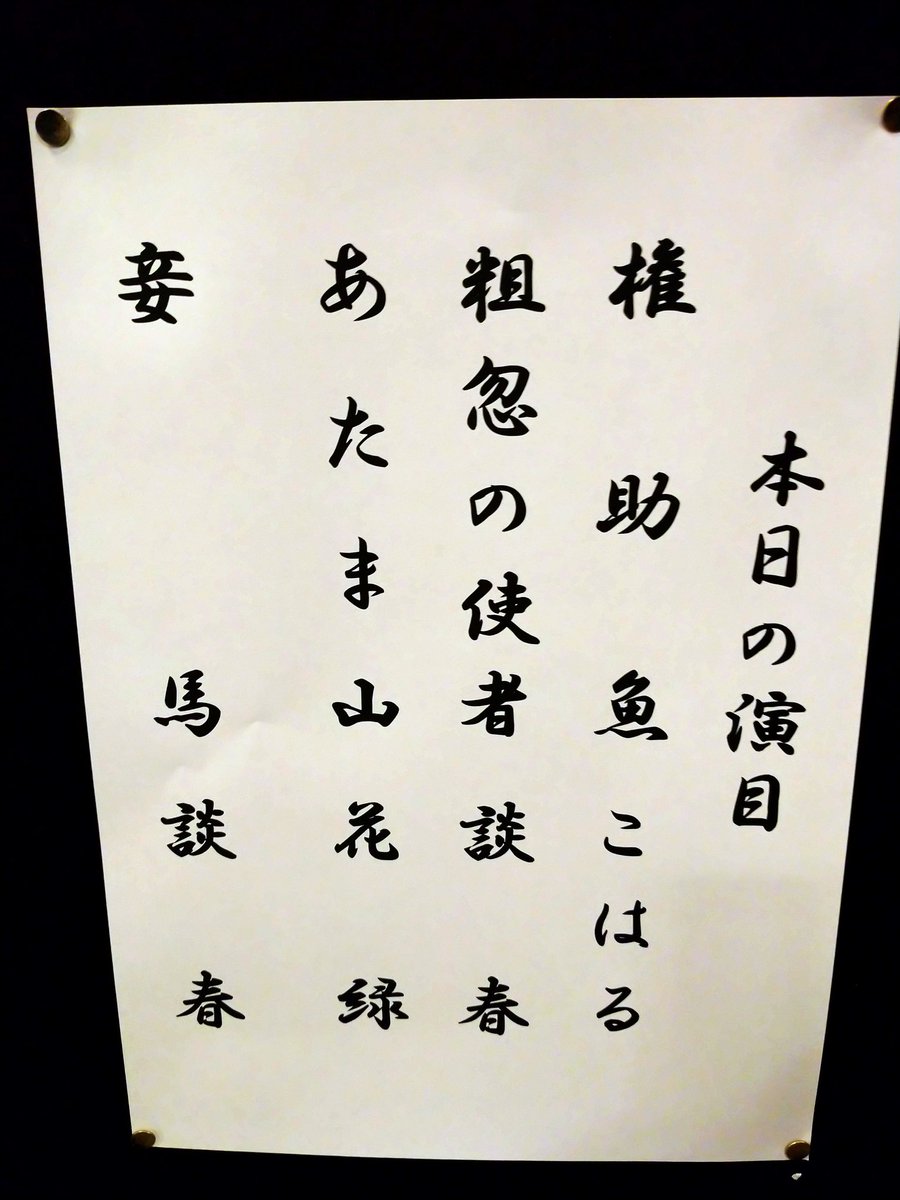 本日の演目
権助魚こはる
粗忽の使者談春
あたま山花緑
妾馬談春